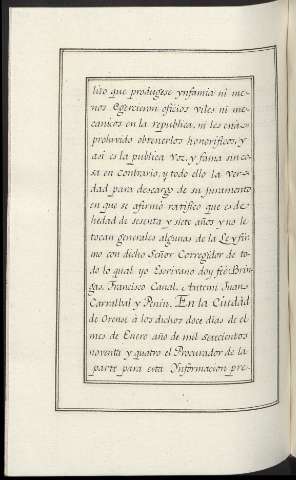 lito que produgese ynfamia ni me-
nos Egercieron oficios viles ni me-
canicos en la republica, ni les era
prohivido obtenerlos honorificos, y
asi es la publica voz, y fama sin co-
sa en contrario, y todo ello la Ver-
dad para descargo de su juramento
en que se afirmó ratificó que es de
hedad de sesenta y siete años y no le
tocan generales algunas de la Ley fir-
mo con dicho Señor Corregidor de to-
do lo qual yo Escrivano doy fée:
gas. Francisco Canal. Antemi Juan
Carvallal y Pinin. En la Ciudad
de Orense á los dichos doce dias de el
mes de Enero año de mil setecientos
noventa y quatro el Procurador de la
parte para esta Informacion pre-